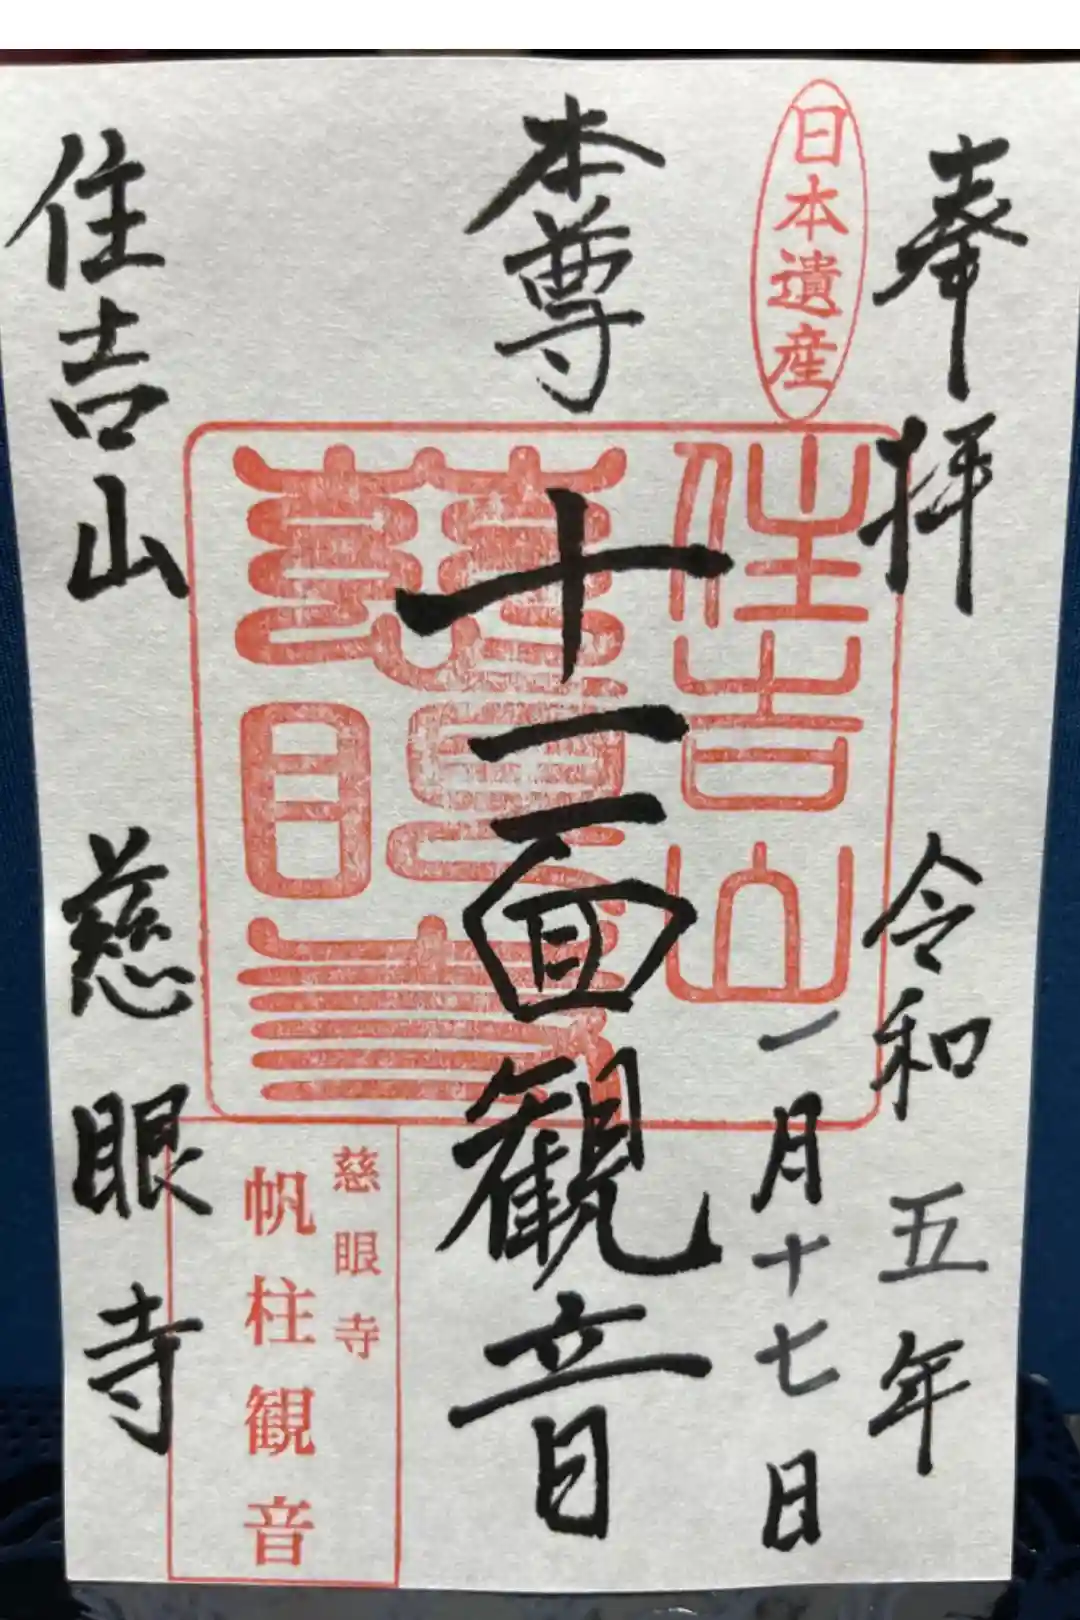 奉拝
令和五年
一月十七日
日本遺産
住吉山
慈眼寺
本尊
十一面観音
慈眼寺
帆柱観音
住吉山
慈眼寺